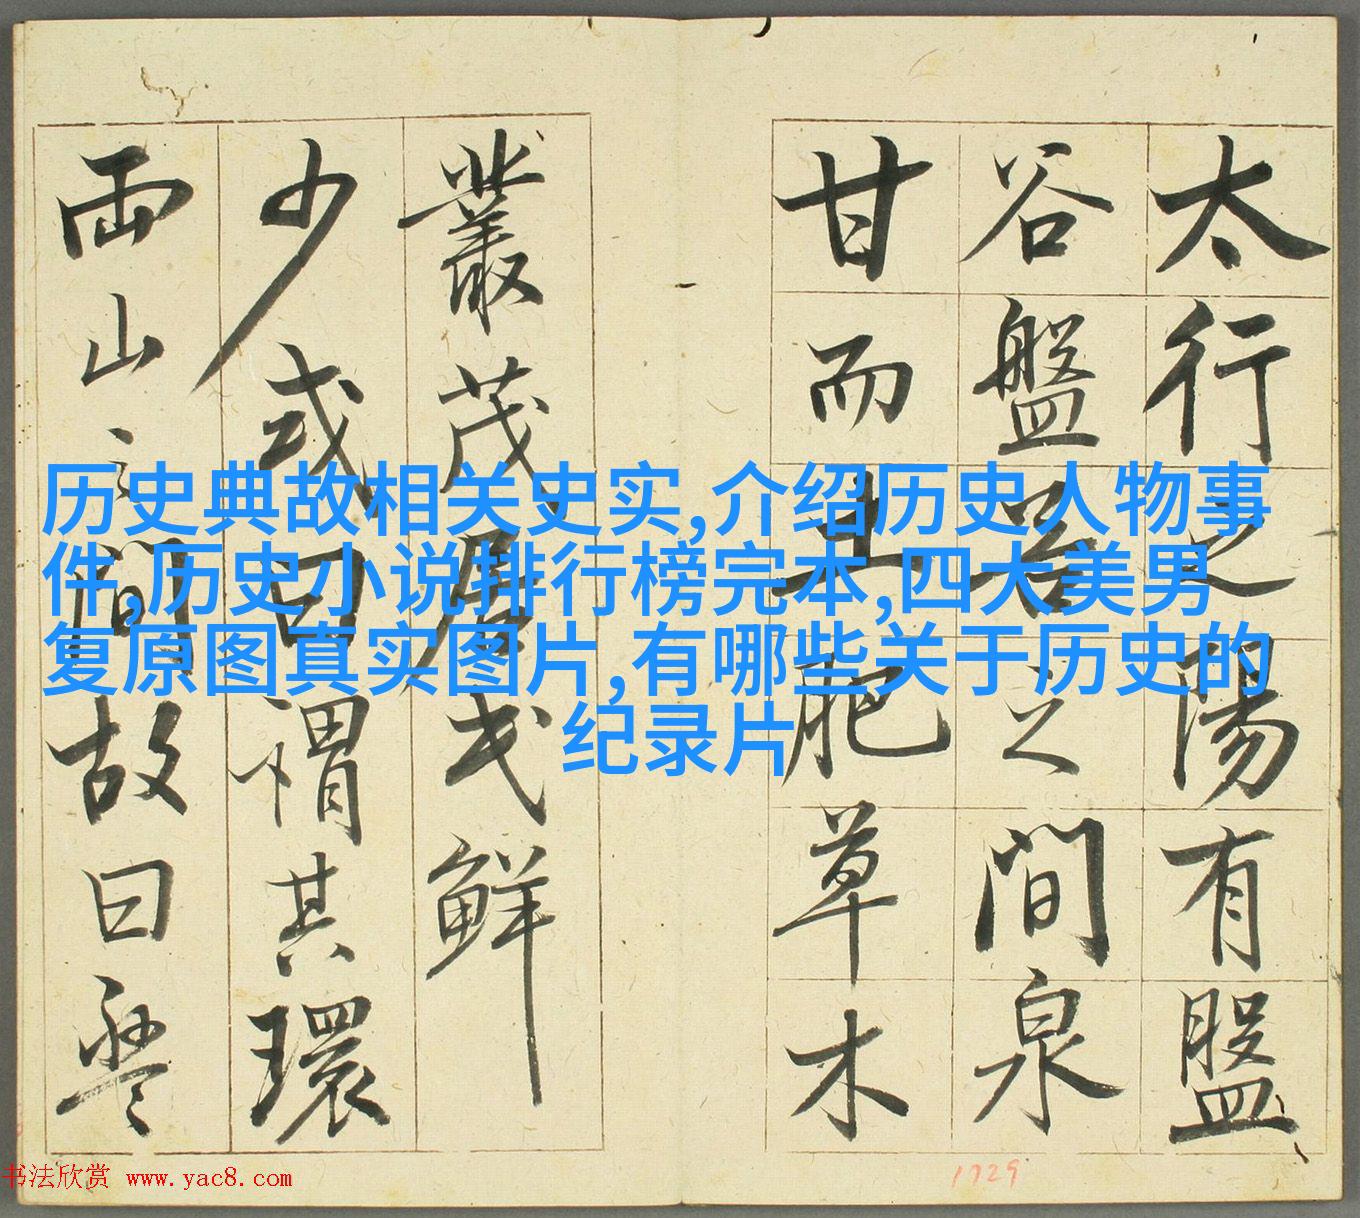 太行之陽有盤
谷盤谷之間泉
甘而土肥草木
叢茂居民鮮
少或曰謂其環
兩山之間故曰盤
历史典故相关史实,介绍历史人物事
件,历史小说排行榜完本,四大美男
复原图真实图片,有哪些关于历史的
纪录片
书法欣赏 www.yac8.com
1729